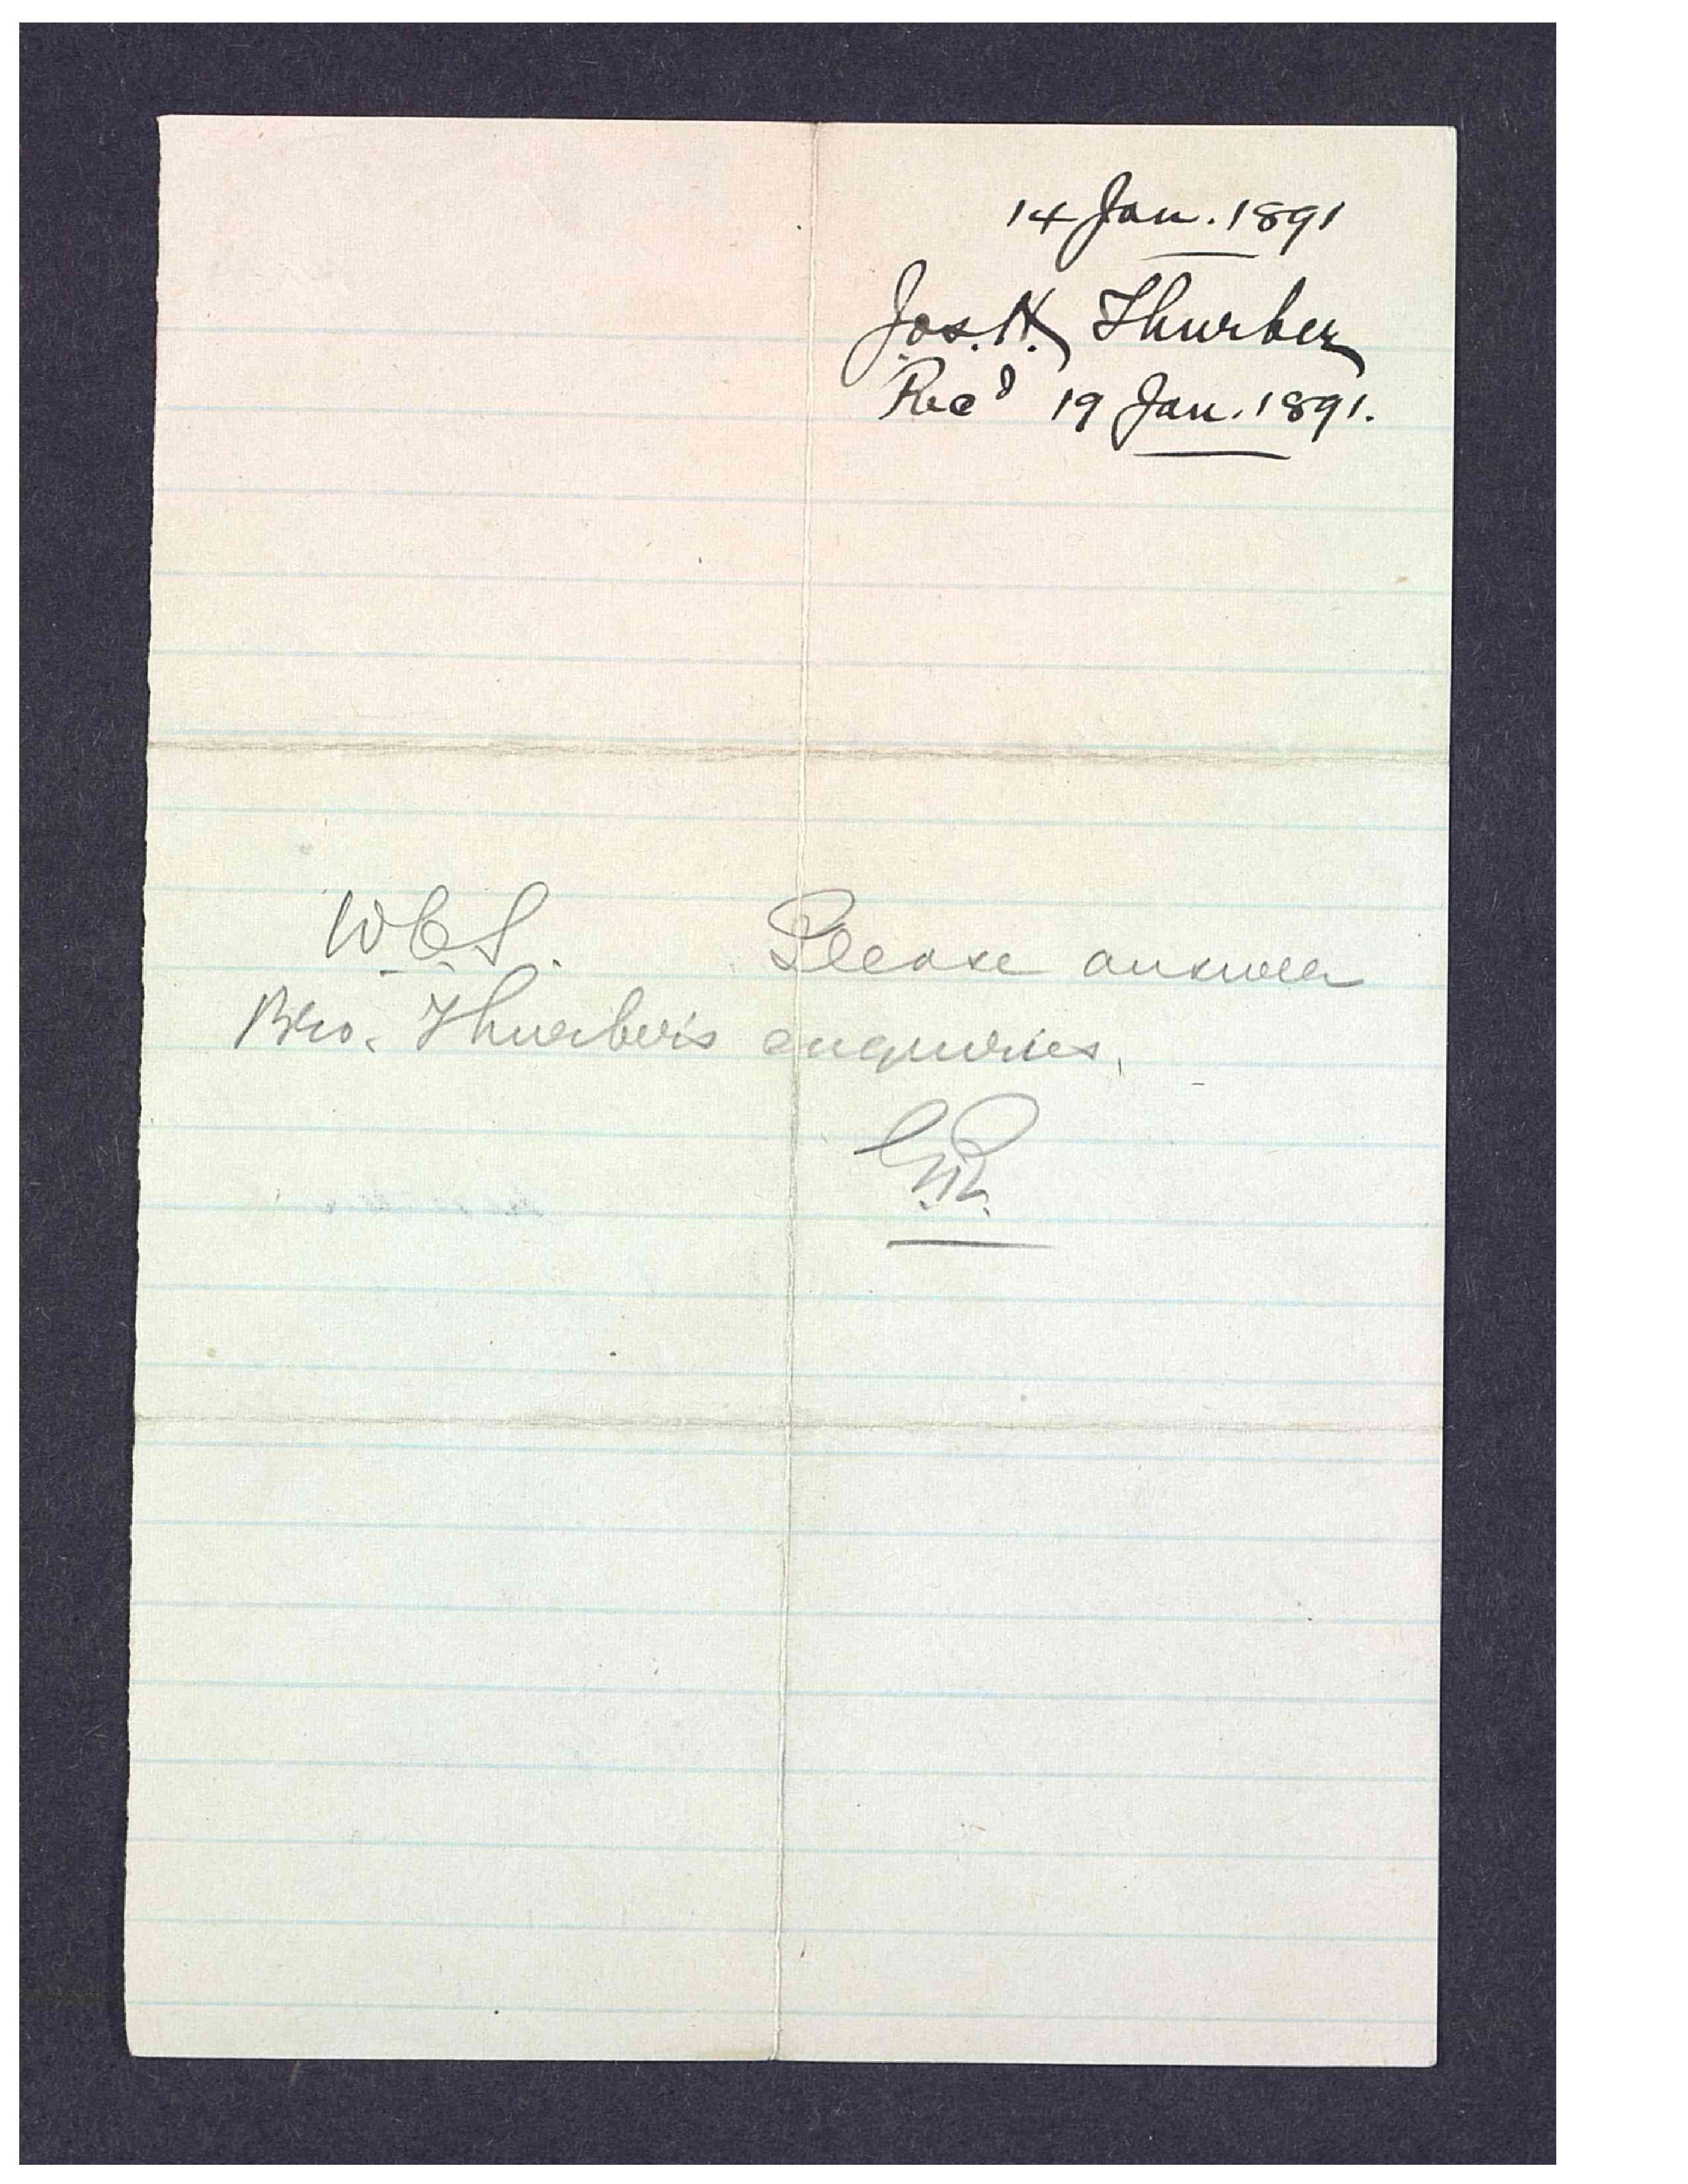 14 Jan. 1891
Jos. H. Thurber
Recd 19 Jan. 1891.
W.C.S. Please answer
Bro. Thurber's enquiries.